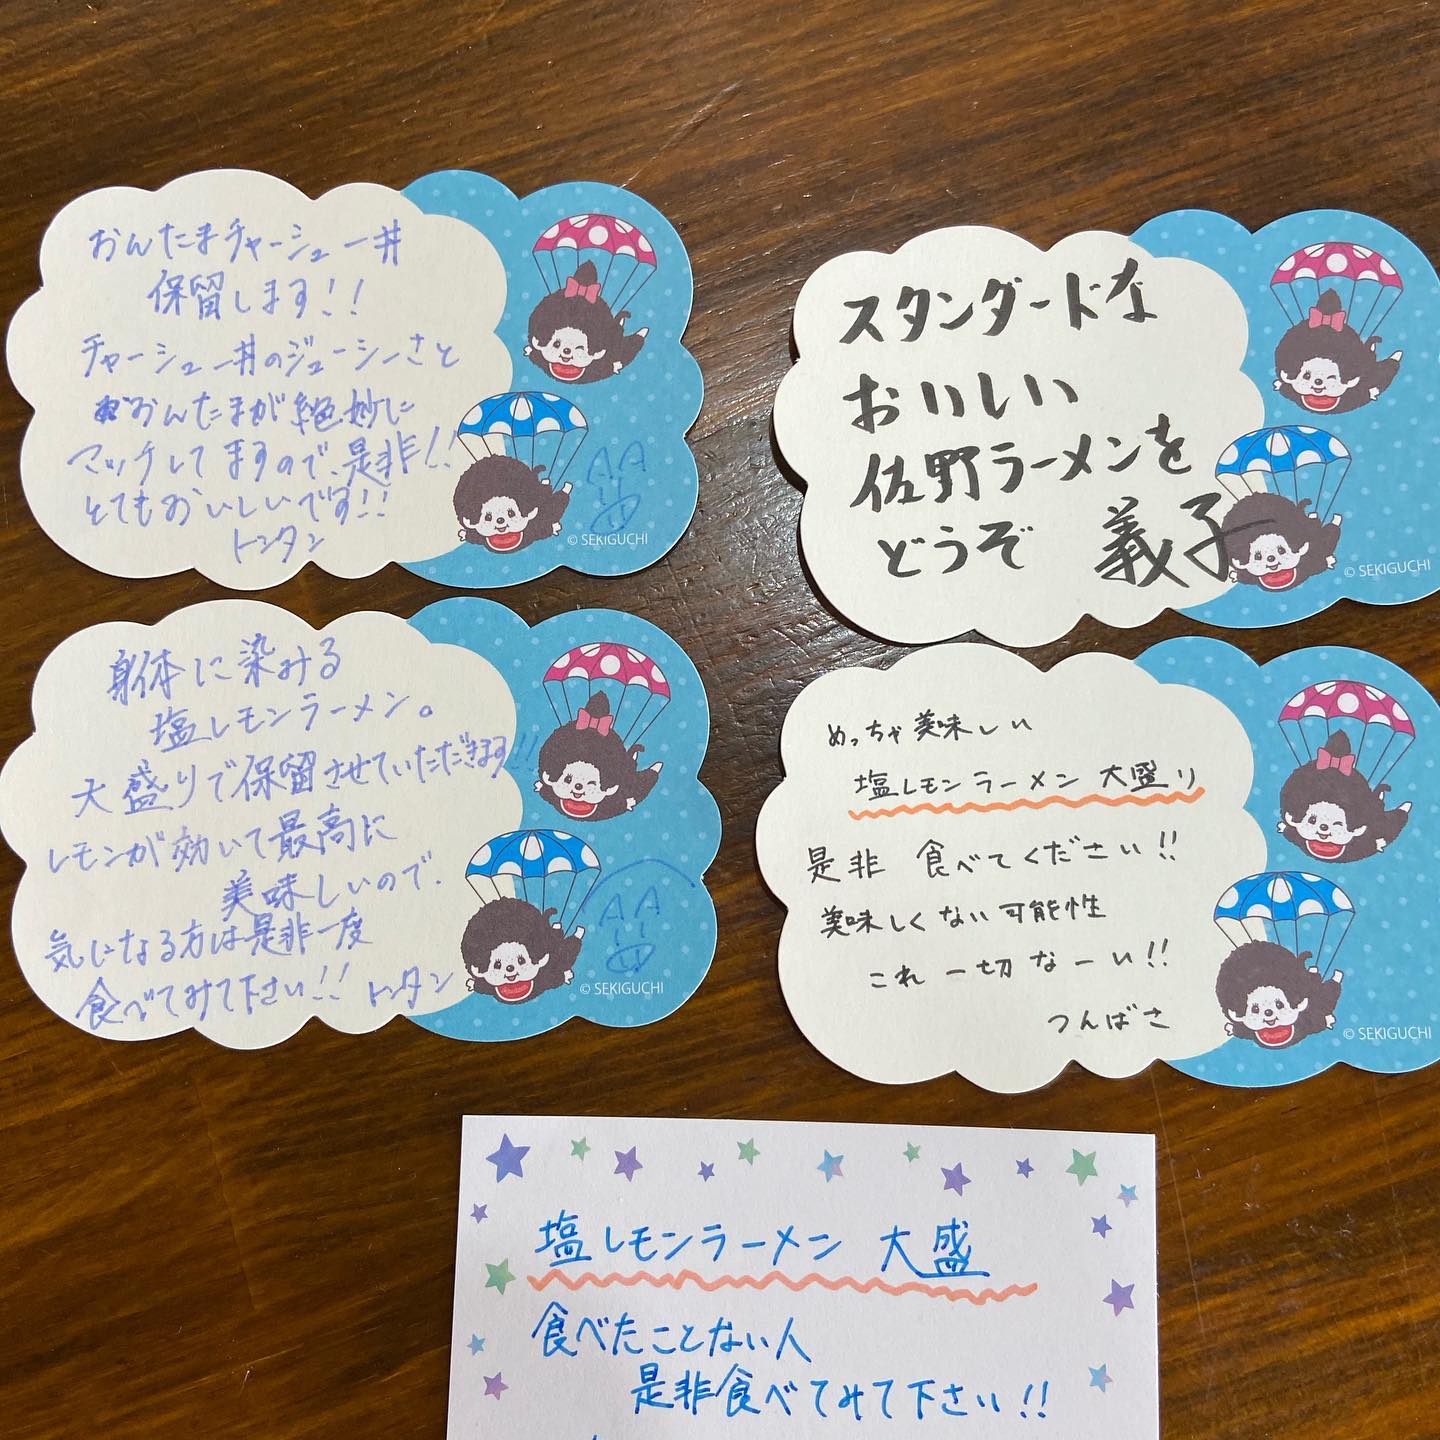 おんたまチャーシュー丼
保留します!!
チャーシュー丼のジューシーさと
おんたまが絶妙に
マッチしてますので、是非!!
とてもおいしいです!!
トンタン
© SEKIGUCHI
スタンダードな
おいしい
佐野ラーメンを
どうぞ 義子
© SEKIGUCHI
身体に染みる
塩レモンラーメン。
大盛りで保留させていただきます!!
レモンが効いて最高に
美味しいので、
気になる方は是非一度
食べてみて下さい!! トンタン
© SEKIGUCHI
めっちゃ美味しい
塩レモンラーメン 大盛り
是非 食べてください!!
美味しくない可能性
これ 一切なーい!!
つんばさ
© SEKIGUCHI
塩レモンラーメン 大盛
食べたことない人
是非食べてみて下さい!!